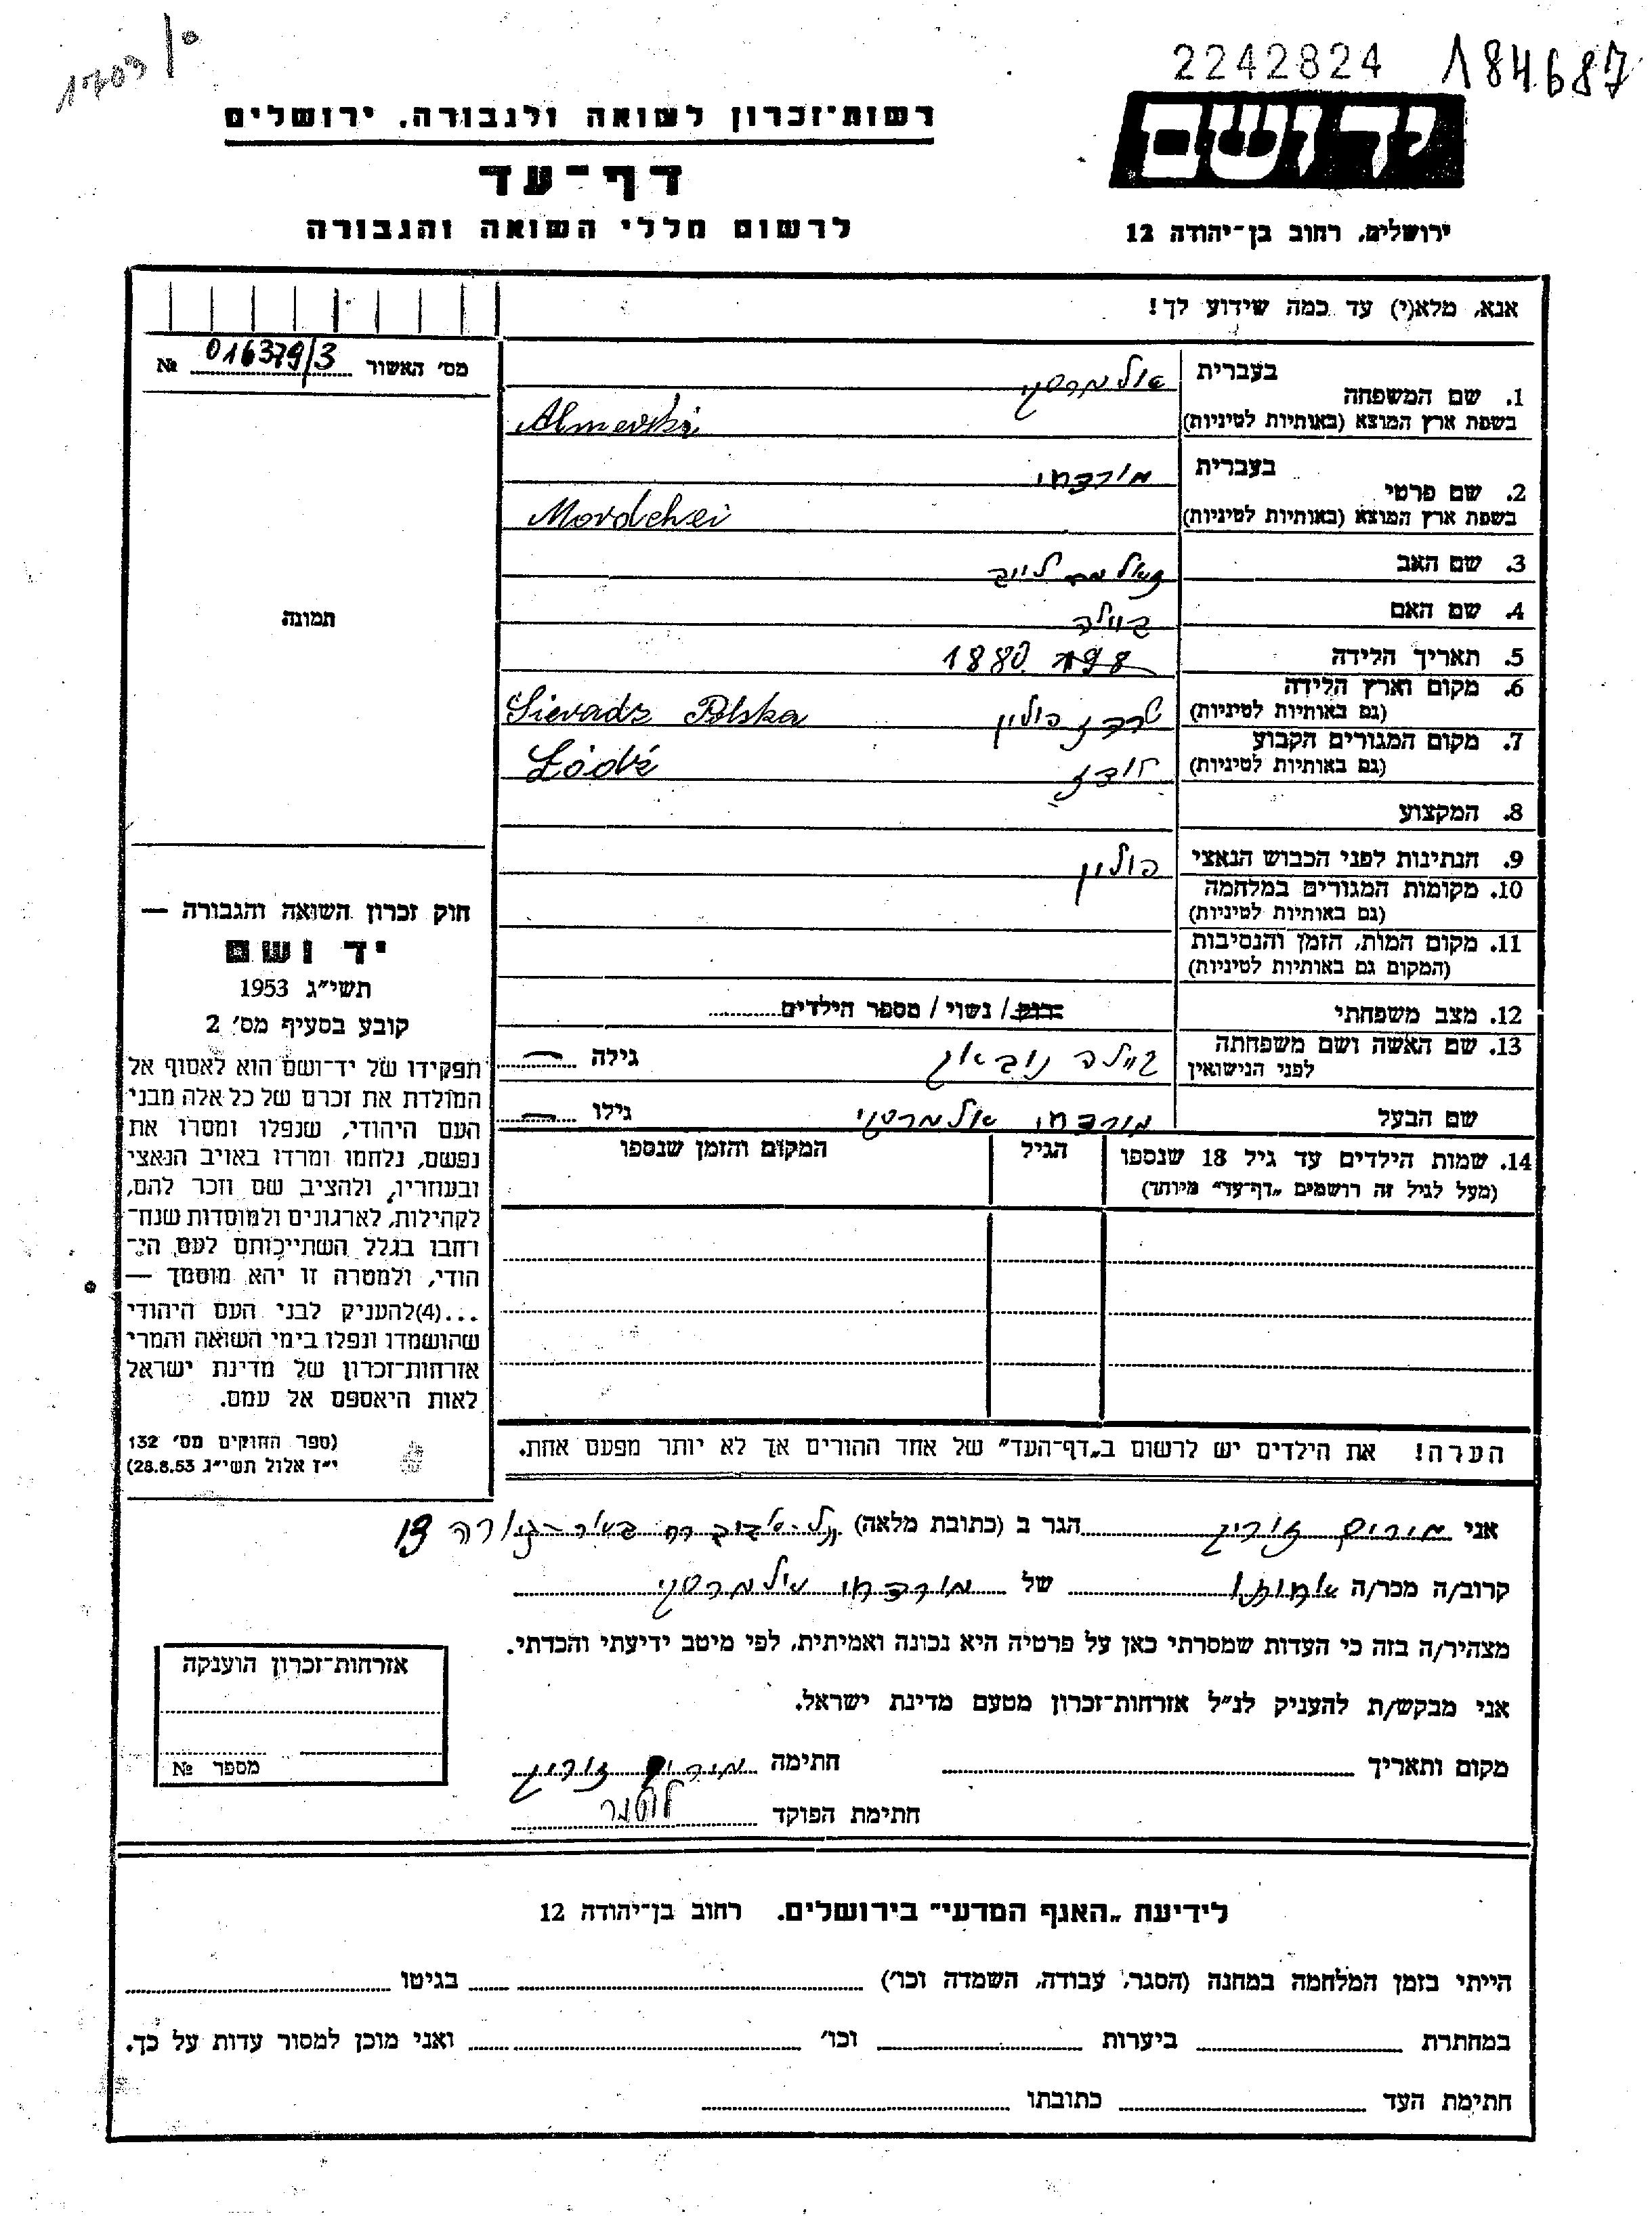 2242824
184687
רשות-זכרון לשואה ולגבורה, ירושלים
יד ושם
דף-עד
לרשום חללי השואה והגבורה
ירושלים, רחוב בן-יהודה 12
אנא, מלא(י) עד כמה שידוע לך!
מס׳ האשור 016379/3 №
תמונה
בעברית
1. שם המשפחה אולמרסקי
בשפת ארץ המוצא (באותיות לטיניות) Almerski
בעברית מורדכי
2. שם פרטי
בשפת ארץ המוצא (באותיות לטיניות) Mordchei
3. שם האב לייב
4. שם האם ביילה
5. תאריך הלידה 1880
6. מקום וארץ הלידה
(גם באותיות לטיניות) שרדז פולין Sieradz Polska
7. מקום המגורים הקבוע
(גם באותיות לטיניות) לודז Łódź
8. המקצוע
9. הנתינות לפני הכבוש הנאצי פולין
10. מקומות המגורים במלחמה
(גם באותיות לטיניות)
11. מקום המות, הזמן והנסיבות
(המקום גם באותיות לטיניות)
12. מצב משפחתי רווק / נשוי / מספר הילדים
13. שם האשה ושם משפחתה
לפני הנישואין ביילה גילה —
שם הבעל מורדכי אולמרסקי גילו —
14. שמות הילדים עד גיל 18 שנספו
(מעל לגיל זה רושמים „דף-עד" מיוחד)
הגיל
המקום והזמן שנספו
הערה! את הילדים יש לרשום ב„דף-העד" של אחד ההורים אך לא יותר מפעם אחת.
חוק זכרון השואה והגבורה —
יד ושם
תשי״ג 1953
קובע בסעיף מס׳ 2
תפקידו של יד-ושם הוא לאסוף אל
המולדת את זכרם של כל אלה מבני
העם היהודי, שנפלו ומסרו את
נפשם, נלחמו ומרדו באויב הנאצי
ובעוזריו, ולהציב שם וזכר להם,
לקהילות, לארגונים ולמוסדות שנח-
רחבו בגלל השתייכותם לעם הי-
הודי, ולמטרה זו יהא מוסמך —
...(4)להעניק לבני העם היהודי
שהושמדו ונפלו בימי השואה והמרי
אזרחות-זכרון של מדינת ישראל
לאות היאספם אל עמם.
(ספר החוקים מס׳ 132
י״ז אלול תשי״ג 28.8.53)
אני מרים הגר ב (כתובת מלאה) 13
קרוב/ה מכר/ה של מורדכי אולמרסקי
מצהיר/ה בזה כי העדות שמסרתי כאן על פרטיה היא נכונה ואמיתית, לפי מיטב ידיעתי והכרתי.
אני מבקש/ת להעניק לנ״ל אזרחות-זכרון מטעם מדינת ישראל.
מקום ותאריך חתימה מרים
חתימת הפוקד
אזרחות-זכרון הוענקה
מספר №
לידיעת „האגף המדעי" בירושלים. רחוב בן-יהודה 12
הייתי בזמן המלחמה במחנה (הסגר, עבודה, השמדה וכו׳) בגיטו
במחתרת ביערות וכו׳ ואני מוכן למסור עדות על כך.
חתימת העד כתובתו